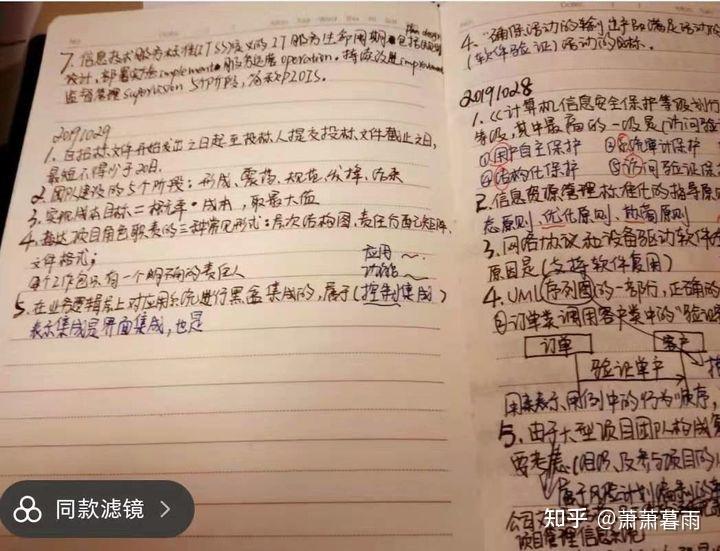 7. 信息技术服务标准(ITSS)定义的IT服务生命周期包括规划
设计、部署实施implement、服务运营operation、持续改进improvement
监督管理supervision 5个阶段，简称PIOIS。
20191029
1. 自招标文件开始发出之日起至投标人提交投标文件截止之日，
最短不得少于20日。
2. 团队建设的5个阶段：形成、震荡、规范、发挥、结束
3. 实现成本目标＝概率·成本，取最大值
4. 描述项目角色职责的三种常见形式：层次结构图、责任分配矩阵、
文件格式；
每个工作包只有一个明确的责任人
应用～
功能～
5. 在业务逻辑层上对应用系统进行黑盒集成的，属于(控制集成)
表示集成是界面集成，也是
4. "确保活动的输出产品满足活动的
(软件验证)活动的目标。
20191028
1.《计算机信息安全保护等级划分
等级，其中最高的一级是(访问验证
①用户自主保护 ②系统审计保护
④结构化保护 ⑤访问验证保
2. 信息资源管理标准化的指导原
态原则、优化原则、协商原则
3. 网络协议和设备驱动软件
原因是(支持软件复用)
4. UML序列图的一部分，正确的
②订单类调用客户类中的"验证
订单
客户
验证单户
用来表示用例中的行为顺序，
5. 由于大型项目团队构成复
要考虑(组织及参与项目的
属于风险计划编制的
公司
项目管理信息系统
同款滤镜
知乎 @萧萧暮雨